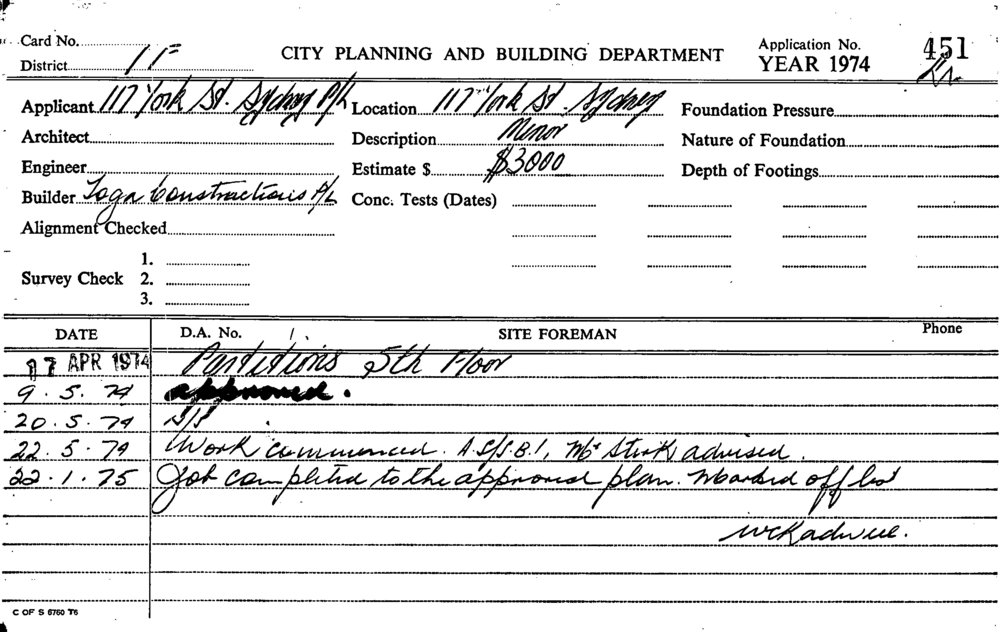 Card No.
District 1F
CITY PLANNING AND BUILDING DEPARTMENT
Application No. 451
YEAR 1974
Applicant 117 York St. Sydney P/L
Location 117 York St. Sydney
Foundation Pressure
Architect
Description Minor
Nature of Foundation
Engineer
Estimate $ $3000
Depth of Footings
Builder Toga Constructions P/L
Conc. Tests (Dates)
Alignment Checked
Survey Check
1.
2.
3.
DATE D.A. No. SITE FOREMAN Phone
17 APR 1974 Partitions 5th Floor
9.5.74 approved.
20.5.74
22.5.74 Work commenced. Mr Stirk advised.
22.1.75 Job completed to the approved plan. Marked off list
C OF S 6760 T6